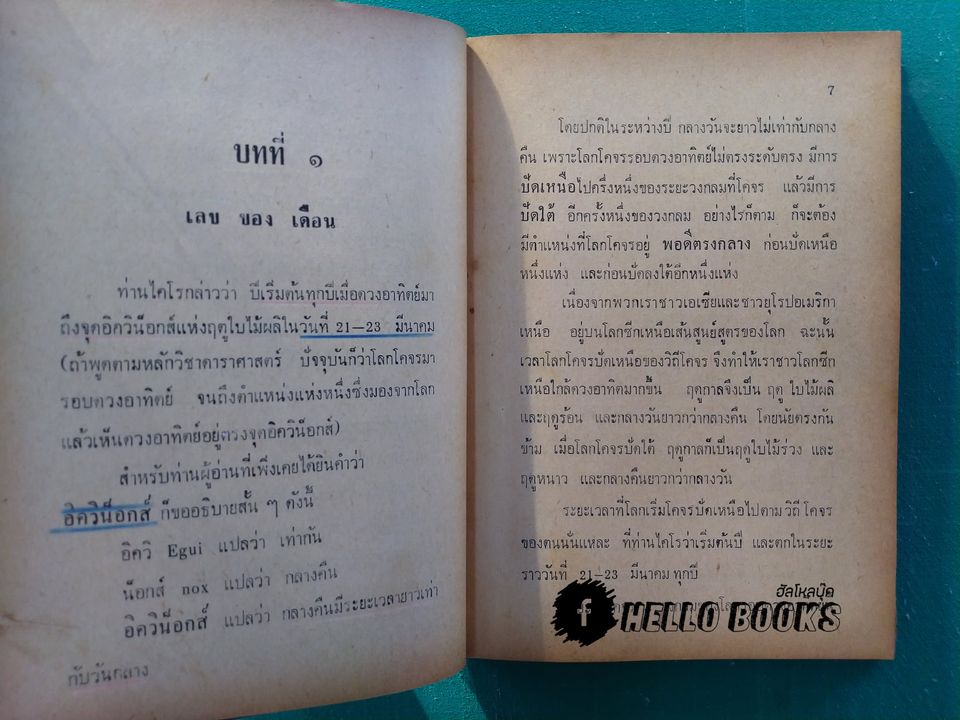 บทที่ ๑
เลข ของ เดือน
ท่านไคโรกล่าวว่า ปีเริ่มต้นทุกปีเมื่อดวงอาทิตย์มา
ถึงจุดอิควิน็อกส์แห่งฤดูใบไม้ผลิในวันที่ 21—23 มีนาคม
(ถ้าพูดตามหลักวิชาดาราศาสตร์ ปัจจุบันก็ว่าโลกโคจรมา
รอบดวงอาทิตย์ จนถึงตำแหน่งแห่งหนึ่งซึ่งมองจากโลก
แล้วเห็นดวงอาทิตย์อยู่ตรงจุดอิควิน็อกส์)
สำหรับท่านผู้อ่านที่เพิ่งเคยได้ยินคำว่า
อิควิน็อกส์ ก็ขออธิบายสั้น ๆ ดังนี้
อิควิ Egui แปลว่า เท่ากัน
น็อกส์ nox แปลว่า กลางคืน
อิควิน็อกส์ แปลว่า กลางคืนมีระยะเวลายาวเท่า
กับวันกลาง
7
โดยปกติในระหว่างปี กลางวันจะยาวไม่เท่ากับกลาง
คืน เพราะโลกโคจรรอบดวงอาทิตย์ไม่ตรงระดับตรง มีการ
ปัดเหนือไปครึ่งหนึ่งของระยะวงกลมที่โคจร แล้วมีการ
ปัดใต้ อีกครั้งหนึ่งของวงกลม อย่างไรก็ตาม ก็จะต้อง
มีตำแหน่งที่โลกโคจรอยู่ พอดีตรงกลาง ก่อนปัดเหนือ
หนึ่งแห่ง และก่อนปัดลงใต้อีกหนึ่งแห่ง
เนื่องจากพวกเราชาวเอเซียและชาวยุโรปอเมริกา
เหนือ อยู่บนโลกซีกเหนือเส้นศูนย์สูตรของโลก ฉะนั้น
เวลาโลกโคจรปัดเหนือของวิถีโคจร จึงทำให้เราชาวโลกซีก
เหนือใกล้ดวงอาทิตมากขึ้น ฤดูกาลจึงเป็น ฤดู ใบไม้ผลิ
และฤดูร้อน และกลางวันยาวกว่ากลางคืน โดยนัยตรงกัน
ข้าม เมื่อโลกโคจรปัดใต้ ฤดูกาลก็เป็นฤดูใบไม้ร่วง และ
ฤดูหนาว และกลางคืนยาวกว่ากลางวัน
ระยะเวลาที่โลกเริ่มโคจรปัดเหนือไปตาม วิถี โคจร
ของตนนั่นแหละ ที่ท่านไคโรว่าเริ่มต้นปี และตกในระยะ
ราววันที่ 21—23 มีนาคม ทุกปี
ฮัลโหลบุ๊ค
f HELLO BOOKS